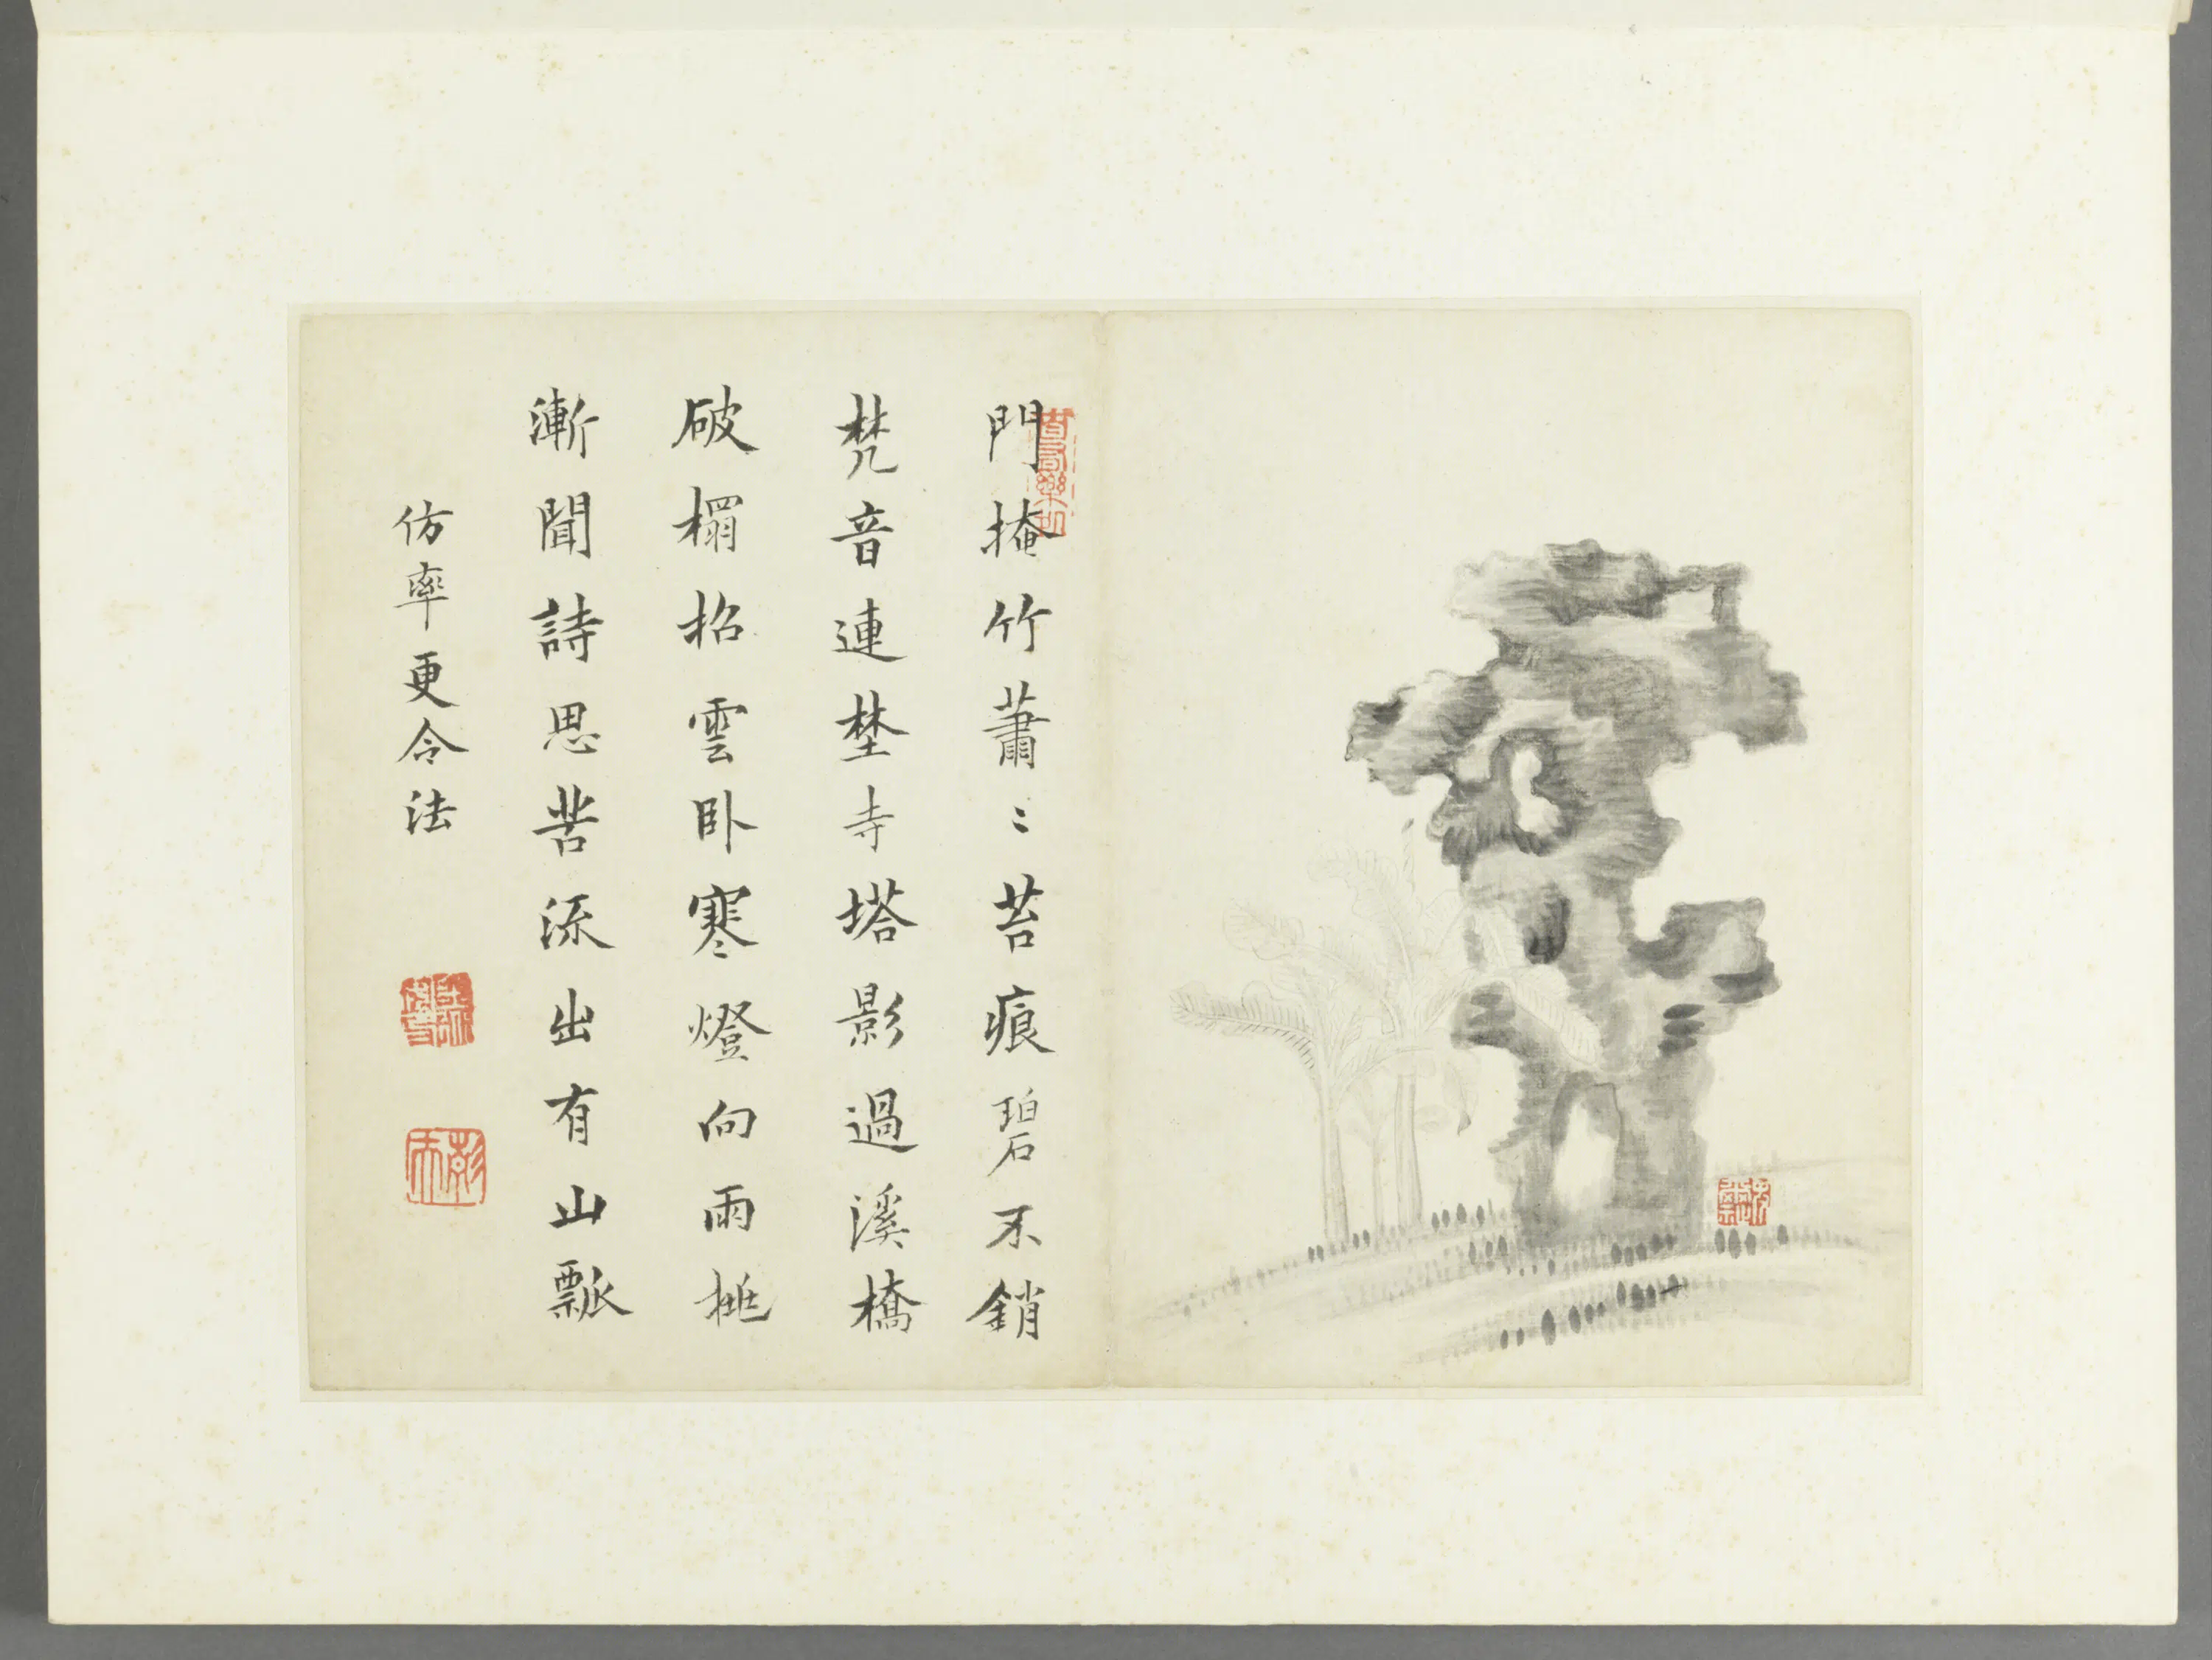 門掩竹蕭〻苔痕碧不銷
梵音連埜寺塔影過溪橋
破榻招雲卧寒燈向雨挑
漸聞詩思苦流出有山瓢
仿率更令法